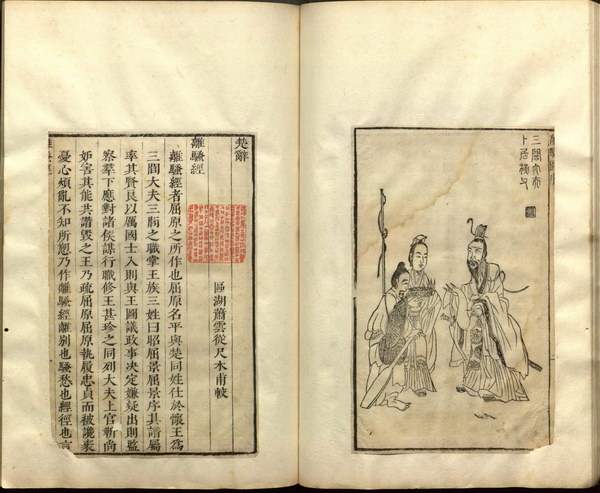 三閭大夫
卜居漁父
楚辭
區湖蕭雲從尺木甫較
離騷經
離騷經者屈原之所作也屈原名平與楚同姓仕於懷王為
三閭大夫三閭之職掌王族三姓曰昭屈景屈原序其譜屬
率其賢良以厲國士入則與王圖議政事决定嫌疑出則監
察羣下應對諸侯謀行職修王甚珍之同列大夫上官靳尚
妬害其能共譖毀之王乃疏屈原屈原執履忠貞而被讒衺
憂心煩亂不知所愬乃作離騷經離別也騷愁也經徑也言